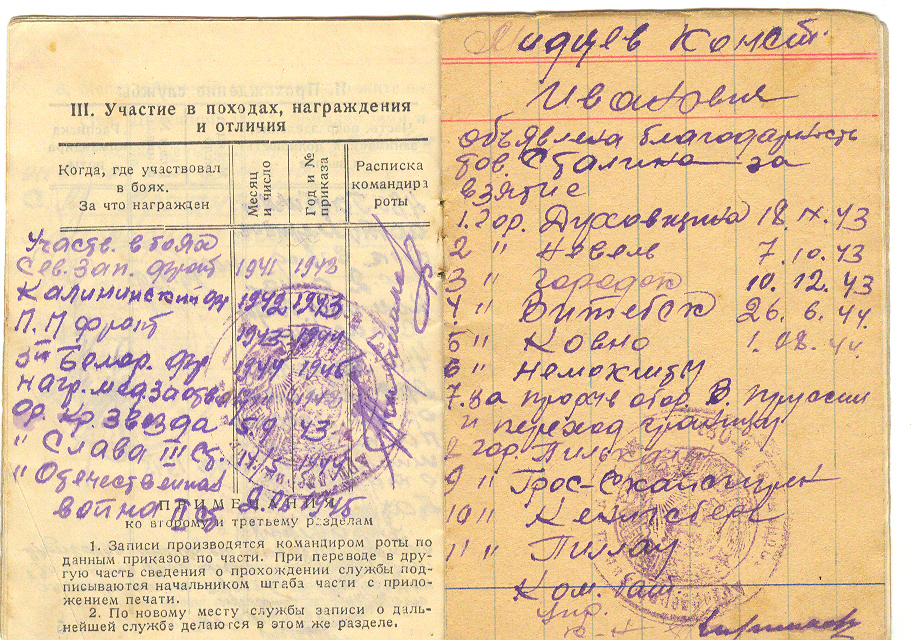 III. Участие в походах, награждения
и отличия
Когда, где участвовал
в боях.
За что награжден
Месяц
и число
Год и №
приказа
Расписка
командира
роты
Участв. в боях
Сев. Зап. фронт 1941 1943
Калининский фр 1942 1943
П.П фронт 1943 1944
3й Белор. фр 1944 1945
нагр. мед. За отвагу
Ор. Кр. Звезда 5.9 43
" Слава III ст.
" Отечественная
война
ПРИМЕЧАНИЯ
ко второму и третьему разделам
1. Записи производятся командиром роты по
данным приказов по части. При переводе в дру-
гую часть сведения о прохождении службы под-
писываются начальником штаба части с прило-
жением печати.
2. По новому месту службы записи о даль-
нейшей службе делаются в этом же разделе.
Конст.
Иванович
объявлена благодарность
тов. Сталина за
взятие
1. Гор. Духовщина 18.IX.43
2 " Невель 7.10.43
3 " Городок 10.12.43
4. " Витебск 26.6.44.
5 " Ковно 1.08.44.
6 " Немокшты
7. За прорыв обор. В. Пруссии
и переход границы
гор. Пилькален
9 " Грос-Скайсгирен
10 " Кенигсберг
11 " Пиллау
Ком. бат